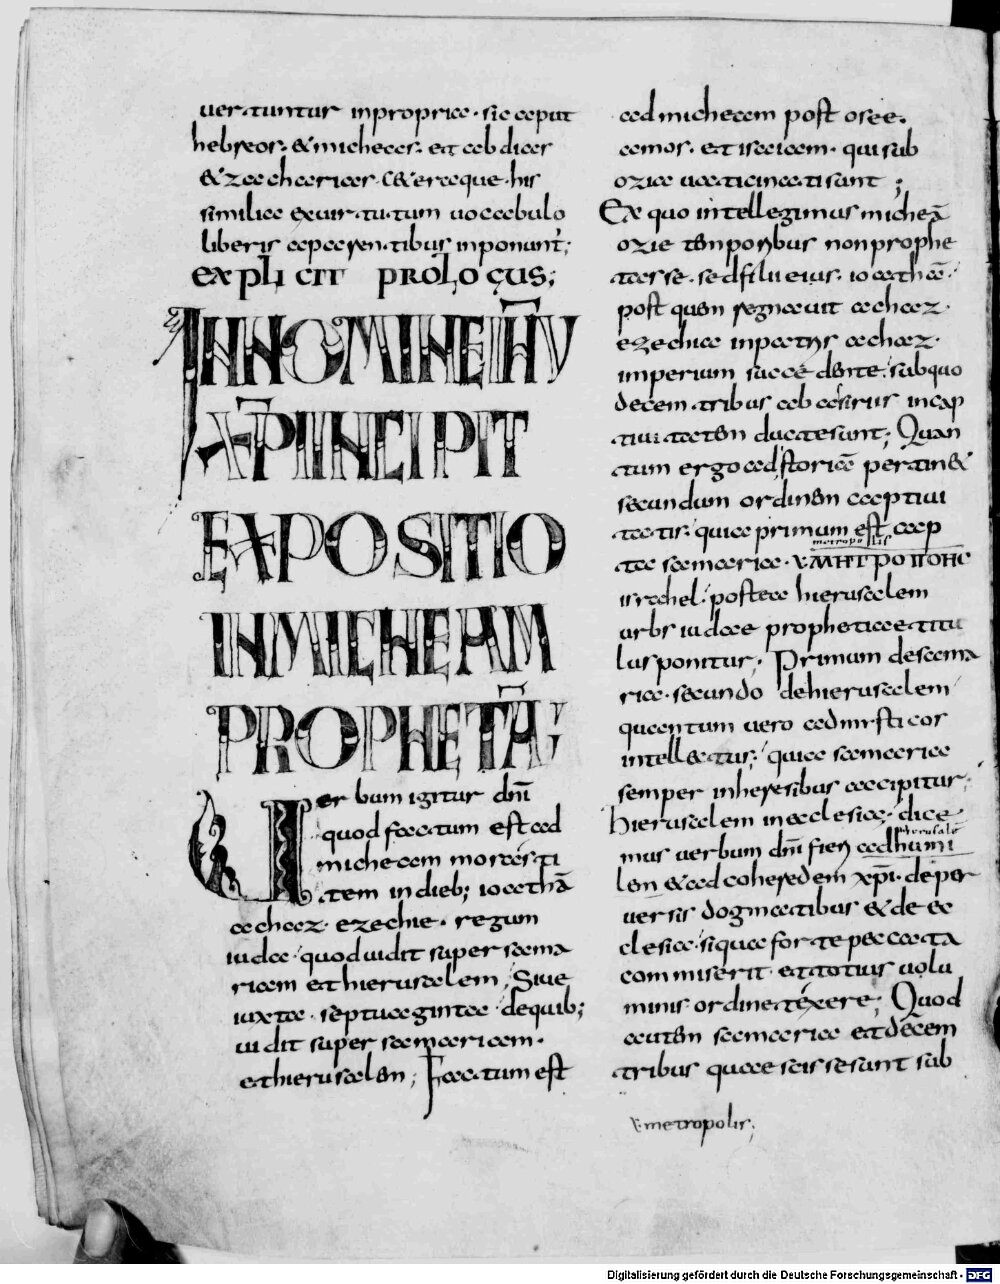 uertuntur inproprica · sic caput
hebreos · & micheas · et abdias
& zacharias · Cęteraque his
similia exuirtutum uocabulo
liberis aparentibus inponunt̄;
EXPLICIT PROLOGUS;
IN NOMINE IHV
XPI INCIPIT
EXPOSITIO
IN MICHEAM
PROPHETĀ;
Uerbum igitur dn̄i
quod factum est ad
micheam morasti
tem in dieb; ioathā
achaz · ezechie · regum
iudae · quod uidit super sama
riam et hierusalem; Siue
iuxta · septuaginta · dequib;
uidit super samariam ·
et hierusalem; Factum est
ad micheam post osee ·
amos · et isaiam · qui sub
ozia uaticinati sunt ;
Ex quo intellegimus micheā
ozie temporibus non prophe
tasse · sed filii eius · ioathā ·
post quem regnauit achaz ·
ezechia inpatris achaz ·
imperium succedente · sub quo
decem tribus ab assiriis in cap
tiuitatem ductesunt; Quan
tum ergo ad storiā pertin&
secundum ordinem captiui
tatis · quia primum est cap
metropolis
ta samaria · v ΜΗΤΡΟΠΟΛΙC
israhel · postea hierusalem
urbs iudae prophetiae titu
lus ponitur; Primum desama
ria · secundo dehierusalem
quantum uero ad misticos
intellectus; quia samaria
semper inheresibus accipitur;
hierusalem in ecclesia · dica
hierusalē
mus uerbum dn̄i fieri adhumi
lem & ad coheredem xp̄i · de per
uersis dogmatibus & de ec
clesia · siqua forte peccata
commiserit et totius uolu
minis ordine texere; Quod
autem samaria et decem
tribus quae scissesunt sub
v metropolis;